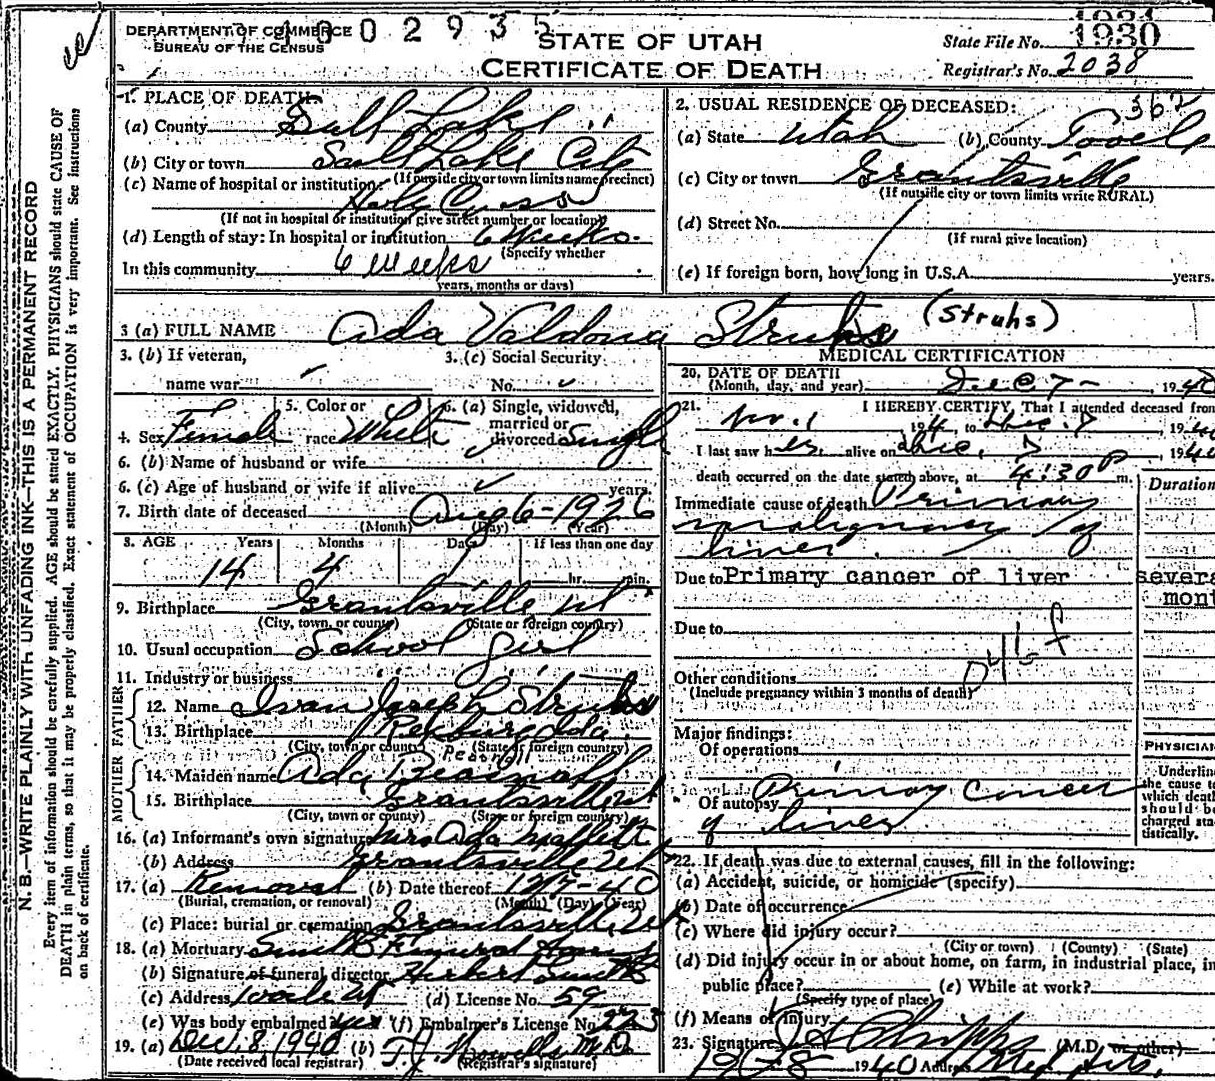 DEPARTMENT OF COMMERCE
BUREAU OF THE CENSUS
1002935
STATE OF UTAH
CERTIFICATE OF DEATH
State File No. 1930
Registrar's No. 2038
1. PLACE OF DEATH:
(a) County Salt Lake
(b) City or town Salt Lake City
(If outside city or town limits name precinct)
(c) Name of hospital or institution:
Holy Cross
(If not in hospital or institution give street number or location)
(d) Length of stay: In hospital or institution 6 Weeks.
(Specify whether
In this community 6 weeks
years, months or days)
362
2. USUAL RESIDENCE OF DECEASED:
(a) State Utah (b) County Tooele
(c) City or town Grantsville
(If outside city or town limits write RURAL)
(d) Street No.
(If rural give location)
(e) If foreign born, how long in U.S.A. years.
3 (a) FULL NAME Ada Valdona Struhs (Struhs)
3. (b) If veteran,
name war
3. (c) Social Security
No.
4. Sex Female
5. Color or
race White
6. (a) Single, widowed,
married or
divorced Single
6. (b) Name of husband or wife
6. (c) Age of husband or wife if alive years
7. Birth date of deceased Aug 6-1926
(Month) (Day) (Year)
8. AGE Years Months Days If less than one day
14 4 1 hr. min.
9. Birthplace Grantsville Ut
(City, town, or county) (State or foreign country)
10. Usual occupation School girl
11. Industry or business
FATHER
12. Name Ivan Joseph Struhs
13. Birthplace Rexburg Ida.
(City, town or county) (State or foreign country)
MOTHER
14. Maiden name Ada
15. Birthplace Grantsville Ut
(City, town or county) (State or foreign country)
16. (a) Informant's own signature Mrs Ada
(b) Address Grantsville Utah
17. (a) Removal (b) Date thereof 12/7-40
(Burial, cremation, or removal) (Month) (Day) (Year)
(c) Place: burial or cremation Grantsville, Ut
18. (a) Mortuary Smith Funeral Home
(b) Signature of funeral director Herbert Smith
(c) Address Tooele Ut (d) License No. 59
(e) Was body embalmed yes (f) Embalmer's License No. 223
19. (a) Dec. 8 1940 (b) T.J. Howells M.D.
(Date received local registrar) (Registrar's signature)
MEDICAL CERTIFICATION
20. DATE OF DEATH
(Month, day, and year) Dec 7- 1940
21. I HEREBY CERTIFY, That I attended deceased from
Nov. 1 194, to Dec. 7, 1940
I last saw her alive on Dec. 7, 1940
death occurred on the date stated above, at 4:30 P m.
Duration
Immediate cause of death Primary
malignancy of
liver.
Due to Primary cancer of liver severa
mont
Due to
Other conditions
(Include pregnancy within 3 months of death)
Major findings:
Of operations
Of autopsy Primary cancer
of liver
PHYSICIAN
Underline
the cause to
which death
should be
charged sta-
tistically.
22. If death was due to external causes, fill in the following:
(a) Accident, suicide, or homicide (specify)
(b) Date of occurrence
(c) Where did injury occur?
(City or town) (County) (State)
(d) Did injury occur in or about home, on farm, in industrial place, in
public place? (e) While at work?
(Specify type of place)
(f) Means of injury
23. Signature (M.D. or other)
1940 Address Med Arts.
N. B.—WRITE PLAINLY WITH UNFADING INK—THIS IS A PERMANENT RECORD
Every item of information should be carefully supplied. AGE should be stated EXACTLY. PHYSICIANS should state CAUSE OF
DEATH in plain terms, so that it may be properly classified. Exact statement of OCCUPATION is very important. See instructions
on back of certificate.